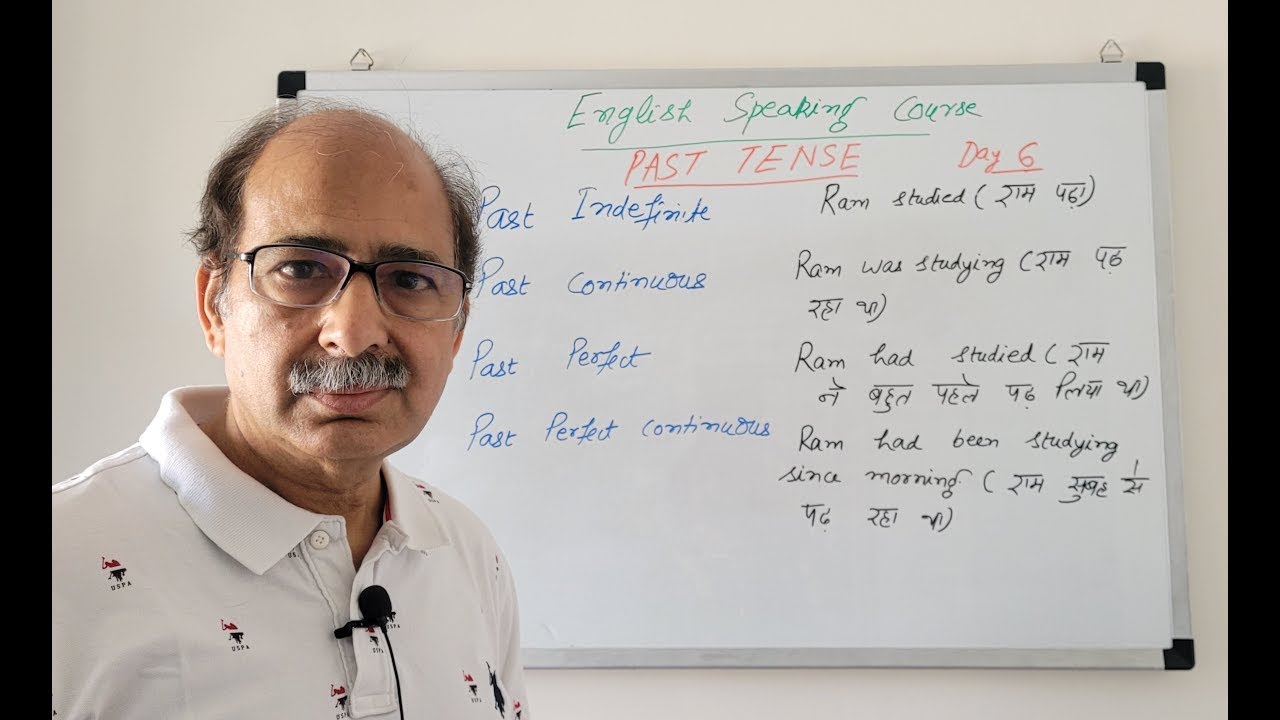 English Speaking Course
PAST TENSE Day 6
Past Indefinite Ram studied ( राम पढ़ा )
Past Continuous Ram was studying ( राम पढ़
रहा था )
Past Perfect Ram had studied ( राम
ने बहुत पहले पढ़ लिया था )
Past Perfect continuous Ram had been studying
since morning ( राम सुबह से
पढ़ रहा था )
USPA
USPA
USPA
USPA
USPA